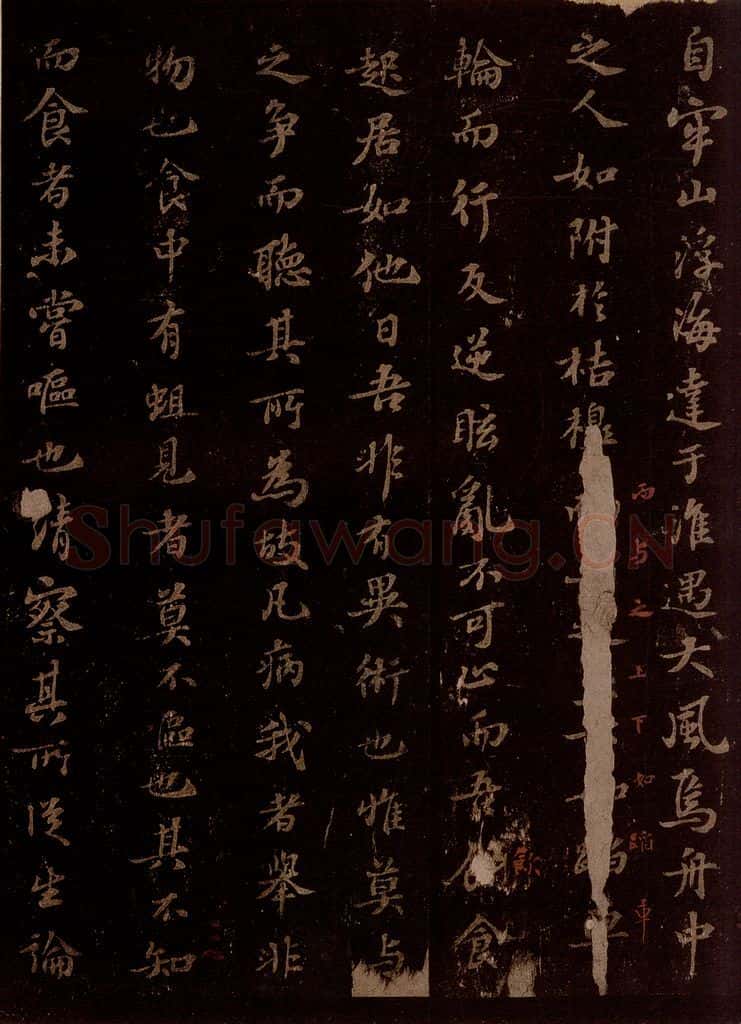 自牢山浮海達于淮遇大風焉舟中
之人如附於桔槔
而与之上下如蹈車
輪而行反逆眩亂不可止而吾飲食
飲
起居如他日吾非有異術也惟莫与
之爭而聽其所為故凡病我者舉非
物也食中有蛆見者莫不嘔也其不知
而食者未嘗嘔也請察其所從生論
Shufawang.CN